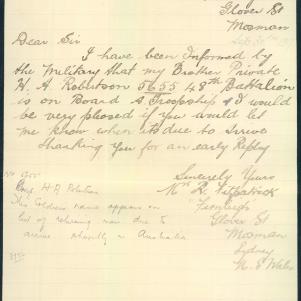 Glover St
Mosman
Dear Sir
I have been Informed by
the Military that my Brother Private
H. A. Robertson 5655 48th Battalion
is on Board A Troopship & I would
be very pleased if you would let
me know when its due to arrive
thanking You for an early Reply
Sincerely Yours
Mrs R. Fitzpatrick
Glover St
Mosman
Sydney
N. S Wales
H A Robertson
This Soldiers name appears on
list of returning now due to
arrive shortly in Australia.